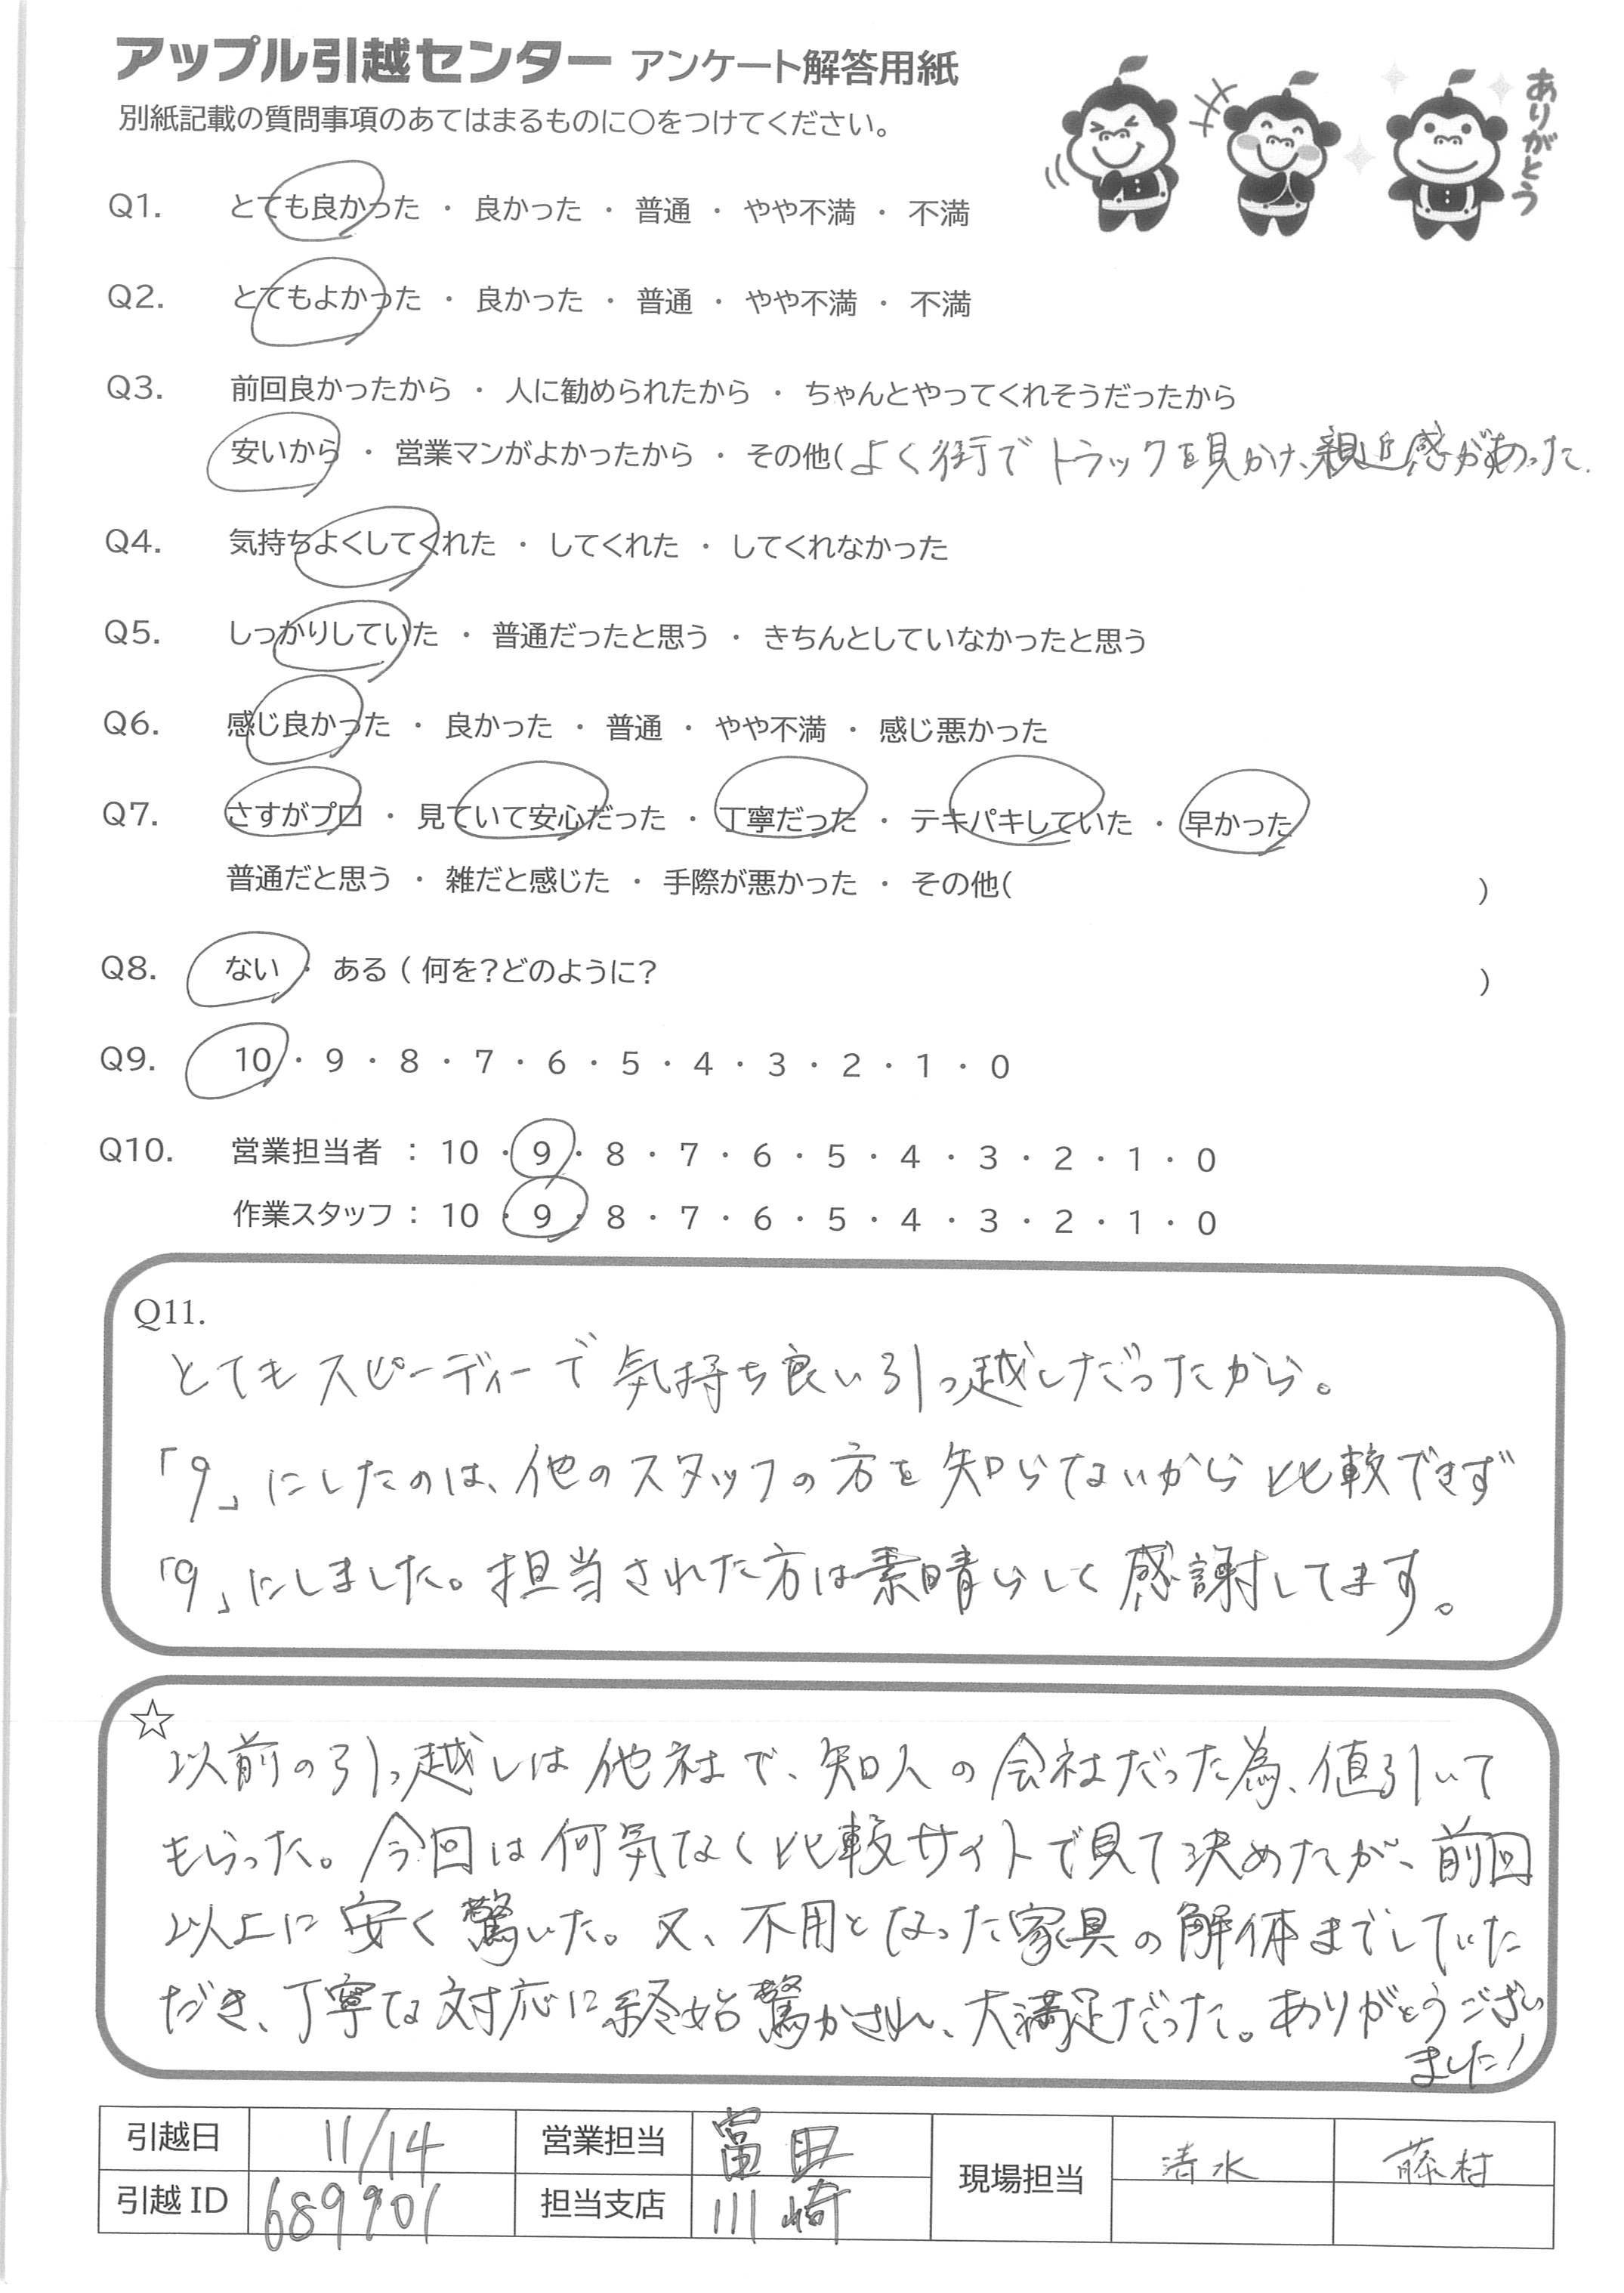 アップル引越センター アンケート解答用紙
別紙記載の質問事項のあてはまるものに○をつけてください。
ありがとう
Q1. とても良かった ・ 良かった ・ 普通 ・ やや不満 ・ 不満
Q2. とてもよかった ・ 良かった ・ 普通 ・ やや不満 ・ 不満
Q3. 前回良かったから ・ 人に勧められたから ・ ちゃんとやってくれそうだったから
安いから ・ 営業マンがよかったから ・ その他( よく街でトラックを見かけ、親近感があった.
Q4. 気持ちよくしてくれた ・ してくれた ・ してくれなかった
Q5. しっかりしていた ・ 普通だったと思う ・ きちんとしていなかったと思う
Q6. 感じ良かった ・ 良かった ・ 普通 ・ やや不満 ・ 感じ悪かった
Q7. さすがプロ ・ 見ていて安心だった ・ 丁寧だった ・ テキパキしていた ・ 早かった
普通だと思う ・ 雑だと感じた ・ 手際が悪かった ・ その他( )
Q8. ない ・ ある ( 何を?どのように? )
Q9. 10 ・ 9 ・ 8 ・ 7 ・ 6 ・ 5 ・ 4 ・ 3 ・ 2 ・ 1 ・ 0
Q10. 営業担当者 : 10 ・ 9 ・ 8 ・ 7 ・ 6 ・ 5 ・ 4 ・ 3 ・ 2 ・ 1 ・ 0
作業スタッフ : 10 ・ 9 ・ 8 ・ 7 ・ 6 ・ 5 ・ 4 ・ 3 ・ 2 ・ 1 ・ 0
Q11.
とてもスピーディーで気持ち良い引っ越しだったから。
「9」にしたのは、他のスタッフの方を知らないから比較できず
「9」にしました。担当された方は素晴らしく感謝してます。
☆
以前の引っ越しは他社で、知人の会社だった為、値引いて
もらった。今回は何気なく比較サイトで見て決めたが、前回
以上に安く驚いた。又、不用となった家具の解体までしていた
だき、丁寧な対応に終始驚かされ、大満足だった。ありがとうござい
ました!
引越日 11/14 営業担当 富田 現場担当 清水 藤村
引越ID 689901 担当支店 川崎